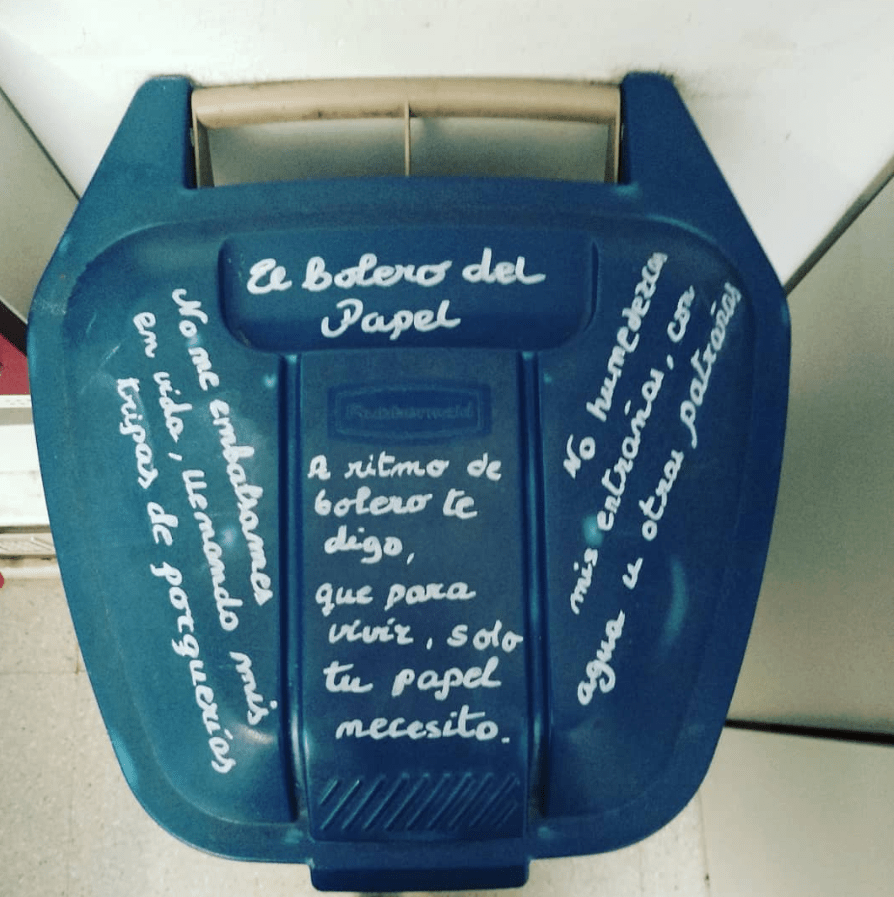 El Bolero del
Papel
No me embalsames
en vida, llenando mis
tripas de porquerías
Rubbermaid
A ritmo de
bolero te
digo,
que para
vivir, solo
tu papel
necesito.
No humedezcas
mis entrañas, con
agua u otras patrañas